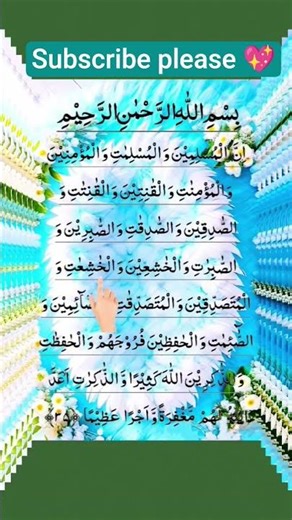 Subscribe please 💖
بِسْمِ اللّٰهِ الرَّحْمٰنِ الرَّحِيْمِ
اِنَّ الْمُسْلِمِيْنَ وَ الْمُسْلِمٰتِ وَ الْمُؤْمِنِيْنَ
وَ الْمُؤْمِنٰتِ وَ الْقٰنِتِيْنَ وَ الْقٰنِتٰتِ وَ
الصّٰدِقِيْنَ وَ الصّٰدِقٰتِ وَ الصّٰبِرِيْنَ وَ
الصّٰبِرٰتِ وَ الْخٰشِعِيْنَ وَ الْخٰشِعٰتِ وَ
الْمُتَصَدِّقِيْنَ وَ الْمُتَصَدِّقٰتِ وَ
الصّٰٓىٕمٰتِ وَ الْحٰفِظِيْنَ فُرُوْجَهُمْ وَ الْحٰفِظٰتِ
كَثِيْرًا وَّ الذّٰكِرٰتِ اَعَدَّ اللّٰهَ
لَهُمْ مَّغْفِرَةً وَّ اَجْرًا عَظِيْمًا ﴿۳۵﴾